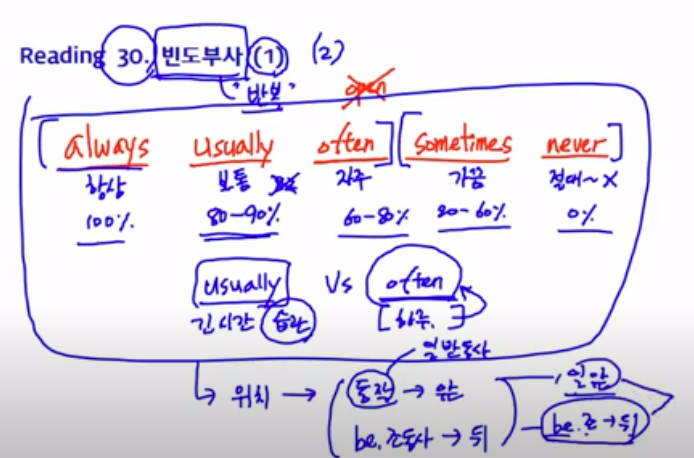 Reading 30. 빈도부사 (1) (2)
"반보" open
[always usually often] [sometimes never]
항상 보통 자주 가끔 절대~X
100% 80-90% 60-80% 20-60% 0%
usually Vs often
긴 시간 습관 [하루.]
일반동사
↳ 위치 → 동작 → 앞 일앞
be.조동사 → 뒤 be.조→뒤